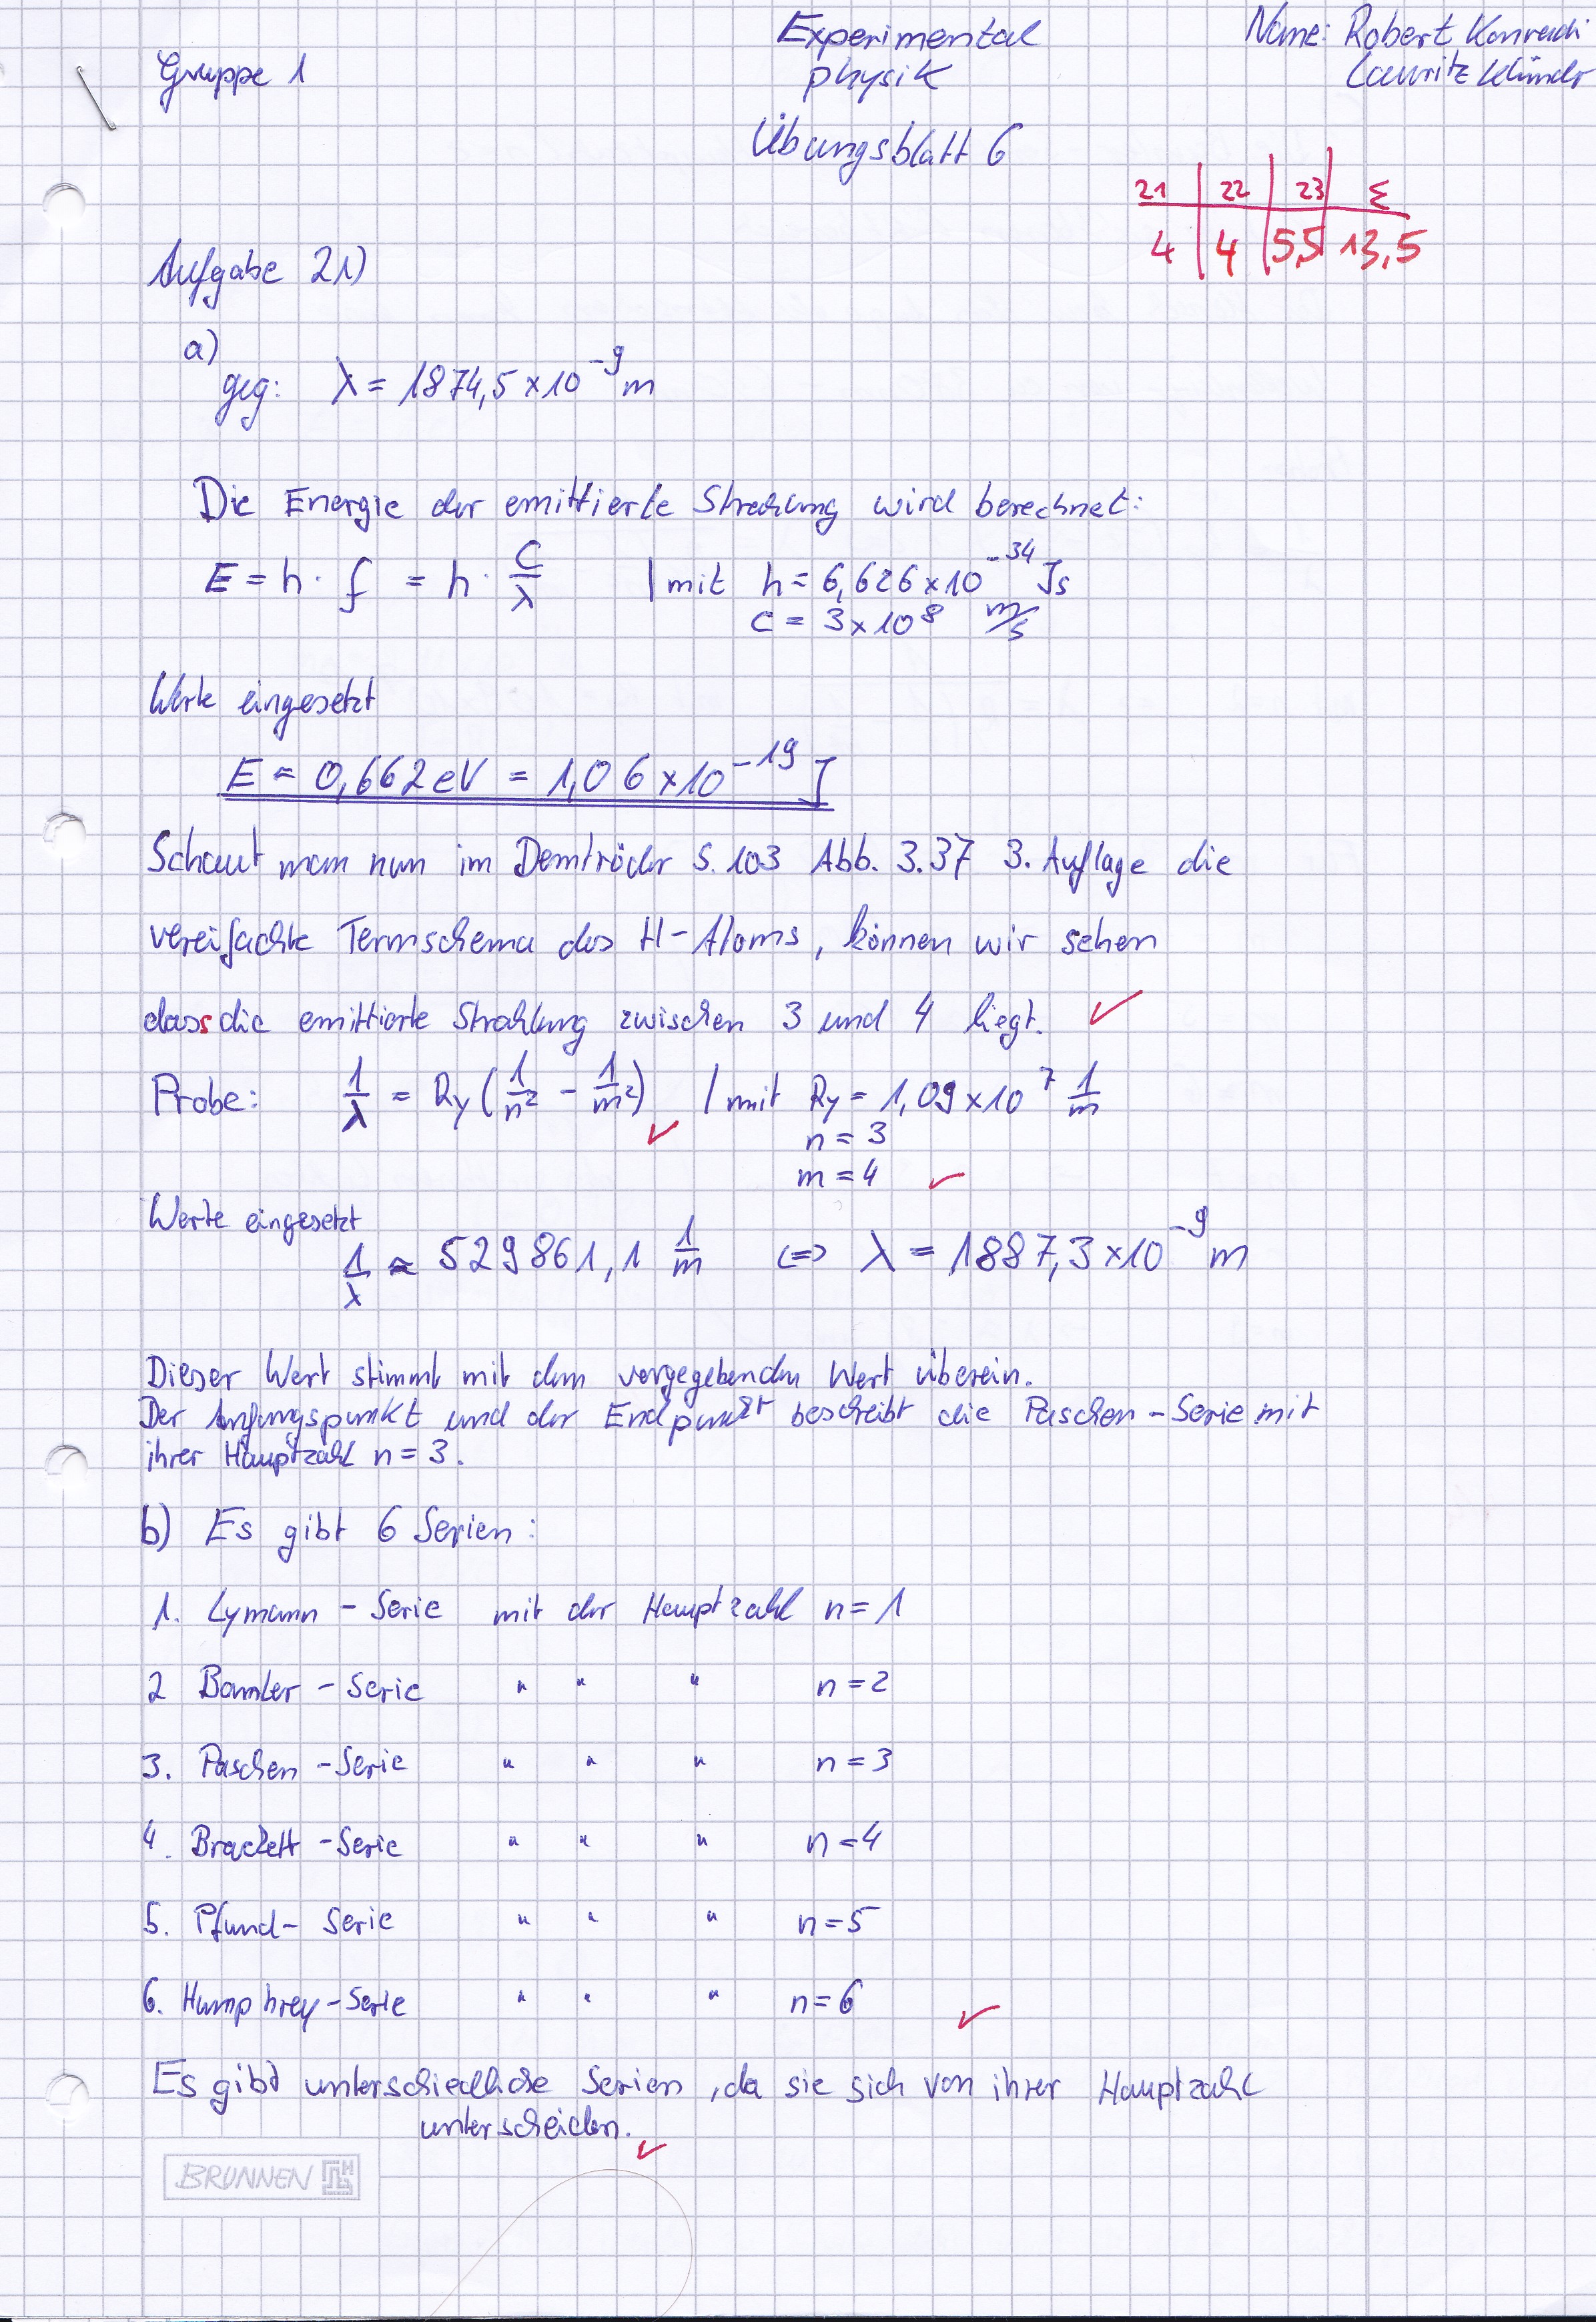 Gruppe 1
Experimental
physik
Übungsblatt 6
Name: Robert Konradi
Lauritz Klünder
21 22 23 Σ
4 4 5,5 13,5
Aufgabe 21)
a)
geg: λ = 1874,5 × 10⁻⁹ m
Die Energie der emittierte Strahlung wird berechnet:
E = h · f = h · c/λ | mit h = 6,626 × 10⁻³⁴ Js
c = 3 × 10⁸ m/s
Werte eingesetzt
E ≈ 0,662 eV = 1,06 × 10⁻¹⁹ J
Schaut man nun im Demtröder S. 103 Abb. 3.37 3. Auflage die
vereifachte Termschema des H-Atoms, können wir sehen
dass die emittierte Strahlung zwischen 3 und 4 liegt. ✓
Probe: 1/λ = Ry (1/n² - 1/m²) ✓ | mit Ry = 1,09 × 10⁷ 1/m
n = 3
m = 4 ✓
Werte eingesetzt
1/λ ≈ 529861,1 1/m ⇔ λ = 1887,3 × 10⁻⁹ m
Dieser Wert stimmt mit dem vorgegebenden Wert überein.
Der Anfangspunkt und der Endpunkt beschreibt die Paschen-Serie mit
ihrer Hauptzahl n = 3.
b) Es gibt 6 Serien:
1. Lymann - Serie mit der Hauptzahl n = 1
2 Bamler - Serie " " " n = 2
3. Paschen - Serie " " " n = 3
4. Brackett - Serie " " " n = 4
5. Pfund - Serie " " " n = 5
6. Humphrey - Serie " " " n = 6 ✓
Es gibt unterschiedliche Serien, da sie sich von ihrer Hauptzahl
unterscheiden. ✓
BRUNNEN